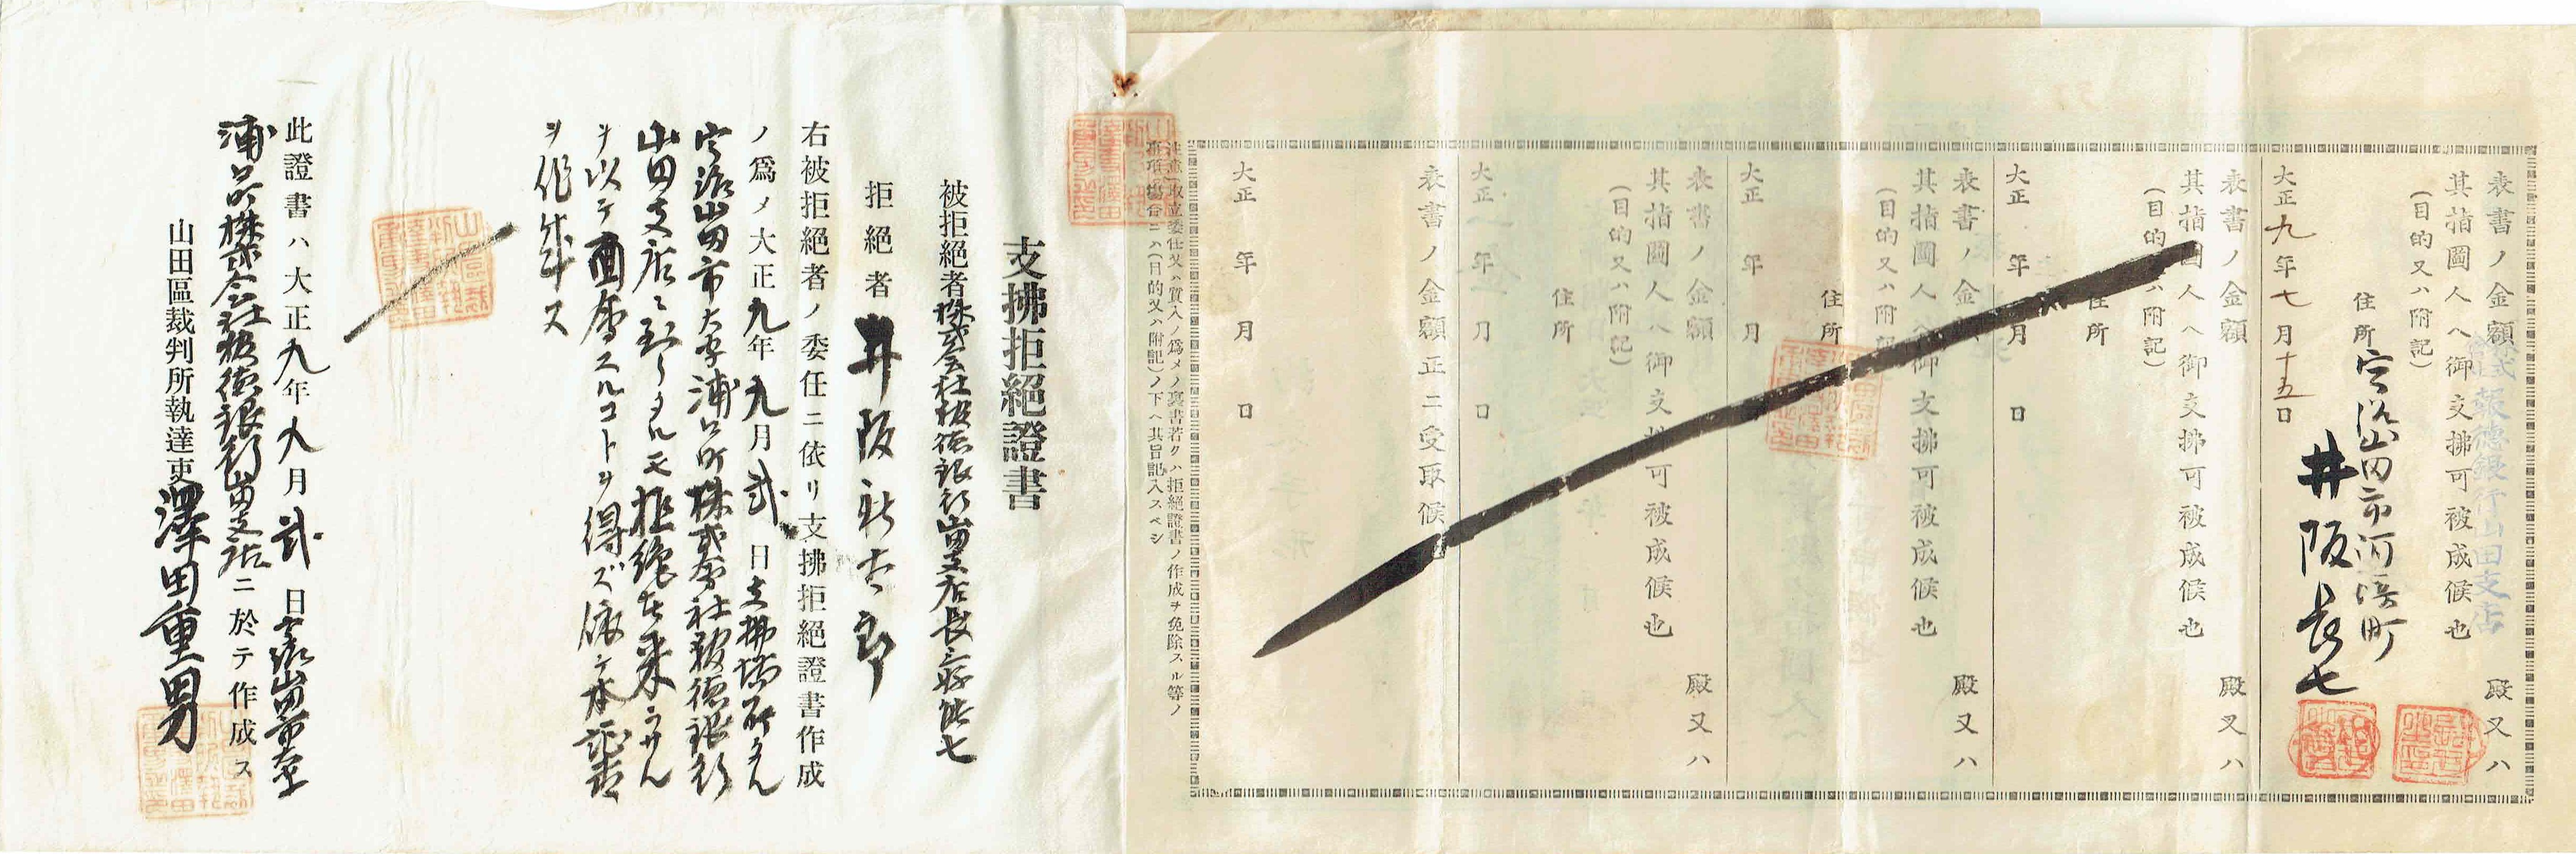 表書ノ金額
株式会社報德銀行山田支店
殿又ハ
其指圖人ヘ御支拂可被成候也
(目的又ハ附記)
住所
宇治山田市河﨑町
井阪長七
大正九年七月十五日
表書ノ金額
殿又ハ
其指圖人ヘ御支拂可被成候也
(目的又ハ附記)
住所
大正 年 月 日
表書ノ金額
殿又ハ
其指圖人ヘ御支拂可被成候也
(目的又ハ附記)
住所
大正 年 月 日
表書ノ金額
殿又ハ
其指圖人ヘ御支拂可被成候也
(目的又ハ附記)
住所
大正 年 月 日
表書ノ金額正ニ受取候
大正 年 月 日
注意(取立委任又ハ質入ノ爲メノ裏書若クハ拒絕證書ノ作成ヲ免除スル等ノ
事項ノ場合ニハ(目的又ハ附記)ノ下ヘ其旨記入スベシ
支拂拒絕證書
被拒絕者株式会社報德銀行山田支店長
拒絕者井阪
右被拒絕者ノ委任ニ依リ支拂拒絕證書作成
ノ爲メ大正九年九月弍日支拂場所タル
宇治山田市大字浦口所株式会社報德銀行
山田支店ニ到リタルモ拒絕者来ラサル
ヲ以テ面會スルコトヲ得ズ依テ本証書
ヲ作成ス
此證書ハ大正九年九月弍日宇治山田市大字
浦口所株式会社報德銀行山田支店ニ於テ作成ス
山田區裁判所執達吏澤田重男